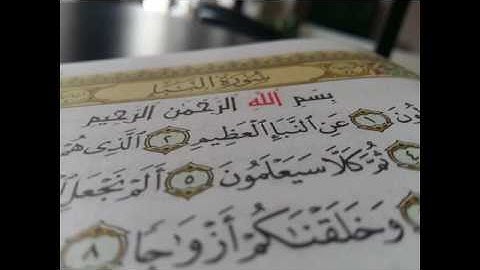 سُورَةُ النَّبَإِ
بِسْمِ اللَّهِ الرَّحْمَٰنِ الرَّحِيمِ
١ عَنِ النَّبَإِ الْعَظِيمِ ٢ الَّذِي هُمْ
٤ ثُمَّ كَلَّا سَيَعْلَمُونَ ٥ أَلَمْ نَجْعَلِ
وَخَلَقْنَاكُمْ أَزْوَاجًا ٨